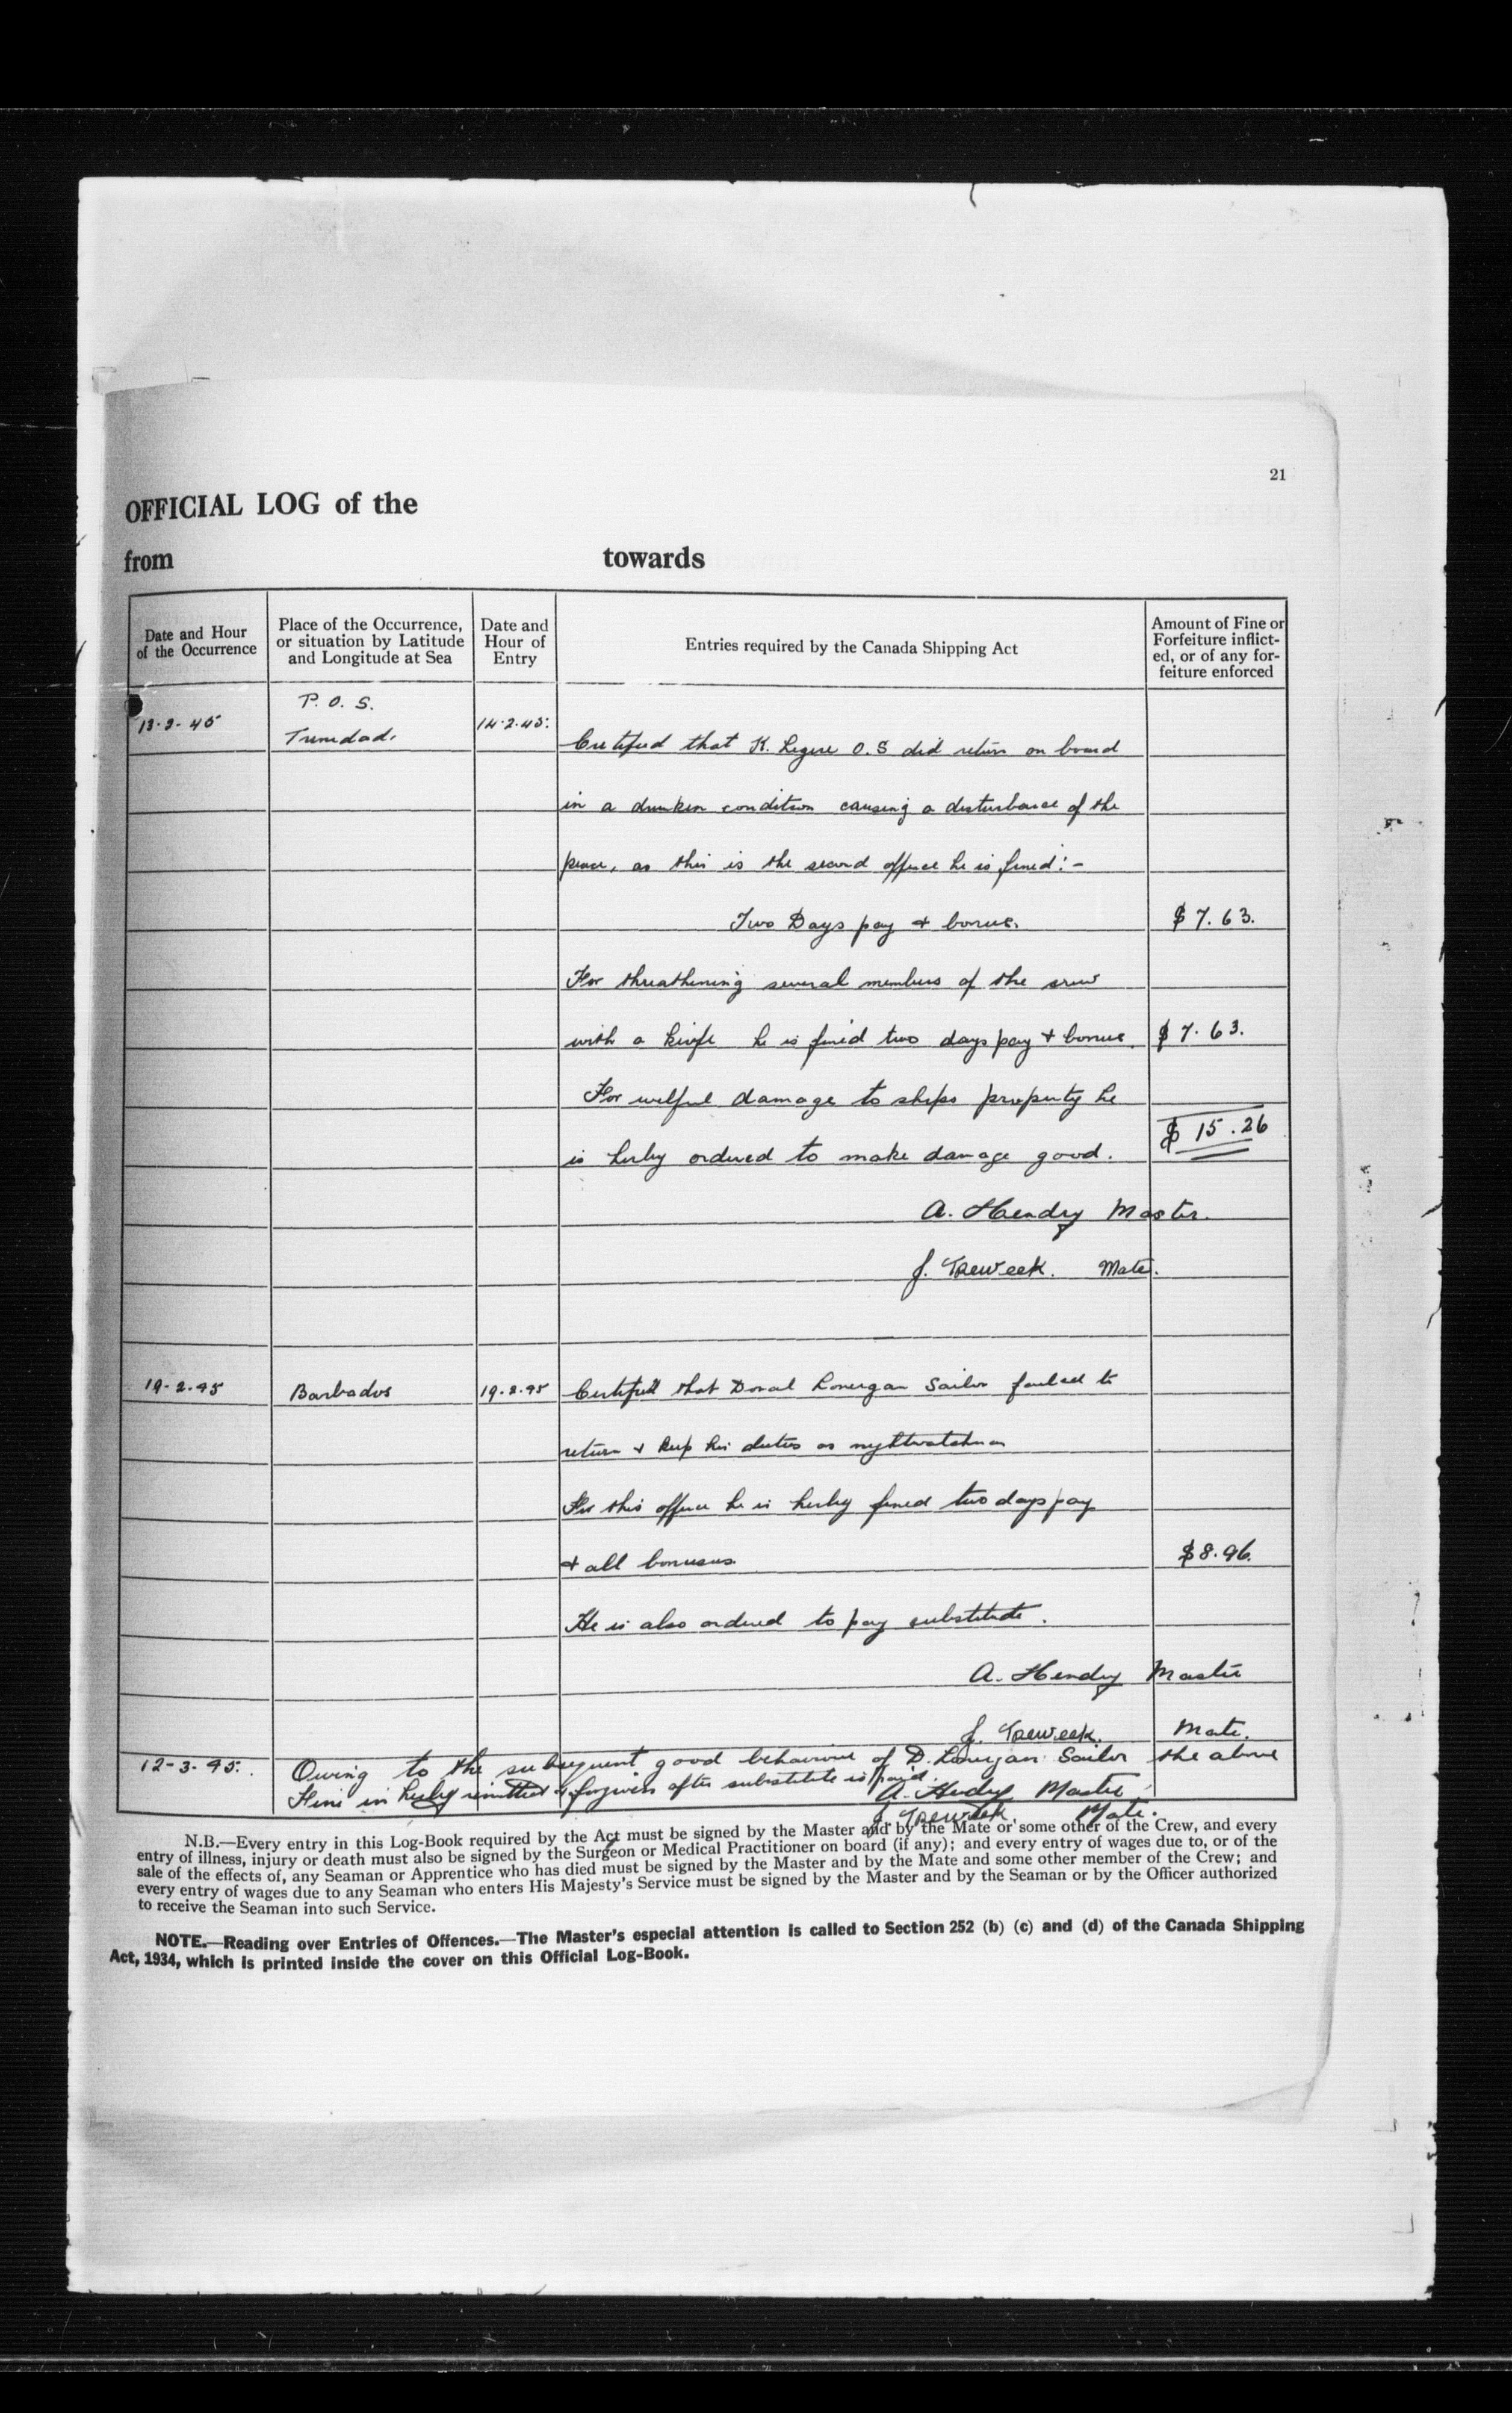 21
OFFICIAL LOG of the
from towards
Date and Hour of the Occurrence
Place of the Occurrence, or situation by Latitude and Longitude at Sea
Date and Hour of Entry
Entries required by the Canada Shipping Act
Amount of Fine or Forfeiture inflicted, or of any forfeiture enforced
P. O. S.
13-2-45 Trinidad. 14.2.45. Certified that K. Legere O.S did return on board
in a drunken condition causing a disturbance of the
peace, as this is the second offence he is fined:-
Two Days pay & bonus. $7.63.
For threathening several members of the crew
with a knife he is fined two days pay & bonus. $7.63.
For wilful damage to ships property he
is herby ordered to make damage good. $15.26
A. Hendry Master.
J. Treweek. Mate.
19-2-45 Barbados 19.2.45 Certified that Donal Lonergan Sailor failed to
return & keep his duties as nightwatchman
For this offence he is herby fined two days pay
& all bonuses. $8.96.
He is also ordered to pay substitute.
A. Hendry Master
J. Treweek. Mate.
12-3-45. Owing to the subsequent good behaviour of D. Lonergan Sailor the above
Fine is herby remitted & forgiven after substitute is paid.
A. Hendry Master
J. Treweek. Mate.
N.B.—Every entry in this Log-Book required by the Act must be signed by the Master and by the Mate or some other of the Crew, and every
entry of illness, injury or death must also be signed by the Surgeon or Medical Practitioner on board (if any); and every entry of wages due to, or of the
sale of the effects of, any Seaman or Apprentice who has died must be signed by the Master and by the Mate and some other member of the Crew; and
every entry of wages due to any Seaman who enters His Majesty's Service must be signed by the Master and by the Seaman or by the Officer authorized
to receive the Seaman into such Service.
NOTE.—Reading over Entries of Offences.—The Master's especial attention is called to Section 252 (b) (c) and (d) of the Canada Shipping
Act, 1934, which is printed inside the cover on this Official Log-Book.